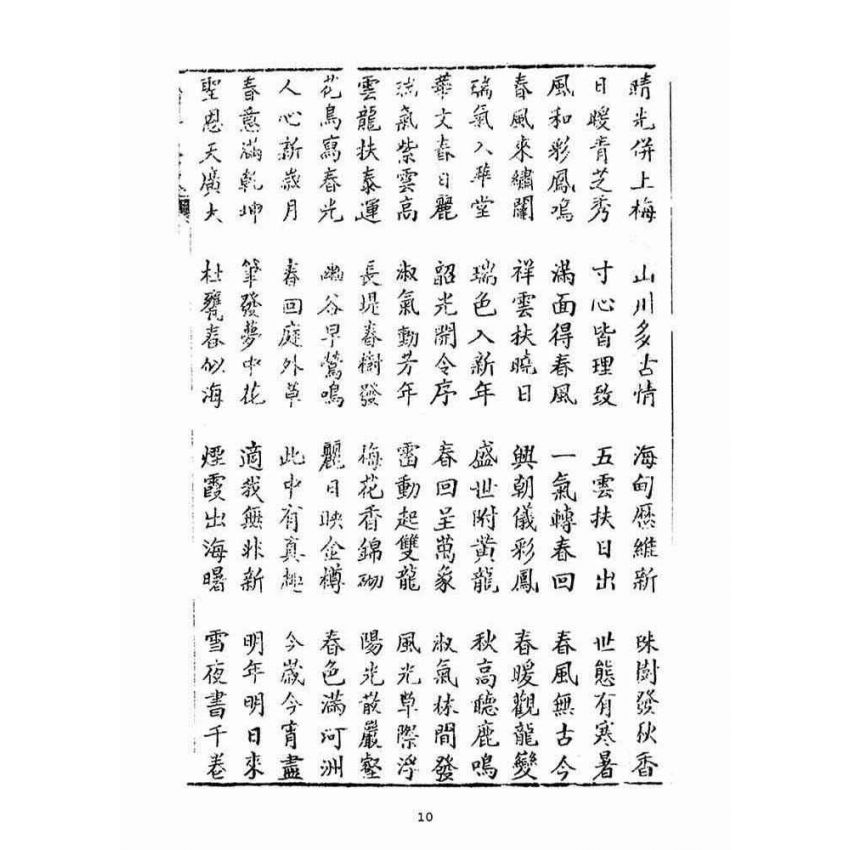 晴光併上梅 山川多古情 海甸曆維新 珠樹發秋香
日暖青芝秀 寸心皆理致 五雲扶日出 世態有寒暑
風和彩鳳鳴 滿面得春風 一氣轉春回 春風無古今
春風來繡闥 祥雲扶曉日 興朝儀彩鳳 春暖觀龍變
瑞氣入華堂 瑞色入新年 盛世附黃龍 秋高聽鹿鳴
華文春日麗 韶光開令序 春回呈萬象 淑氣林間發
瑞氣紫雲高 淑氣動芳年 雷動起雙龍 風光草際浮
雲龍扶泰運 長堤春樹發 梅花香錦砌 陽光散嚴壑
花鳥寫春光 幽谷早鶯鳴 麗日映金樽 春色滿河洲
人心新歲月 春回庭外草 此中有真趣 今歲今宵盡
春意滿乾坤 筆發夢中花 適我無非新 明年明日來
聖恩天廣大 杜甕春似海 煙霞出海曙 雪夜書千卷
10